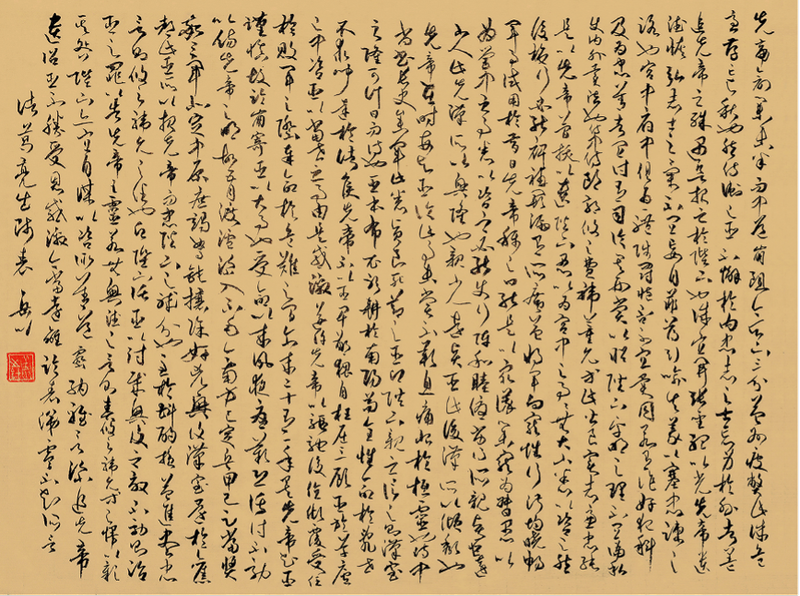 先帝創業未半而中道崩殂今天下三分益州疲弊此誠危
急存亡之秋也然侍衛之臣不懈於內忠志之士忘身於外者蓋
追先帝之殊遇欲報之於陛下也誠宜開張聖聽以光先帝遺
德恢弘志士之氣不宜妄自菲薄引喻失義以塞忠諫之
路也宮中府中俱為一體陟罰臧否不宜異同若有作奸犯科
及為忠善者宜付有司論其刑賞以昭陛下平明之理不宜偏私
使內外異法也侍中侍郎郭攸之費禕董允等此皆良實志慮忠純
是以先帝簡拔以遺陛下愚以為宮中之事事無大小悉以咨之然
後施行必能裨補闕漏有所廣益將軍向寵性行淑均曉暢
軍事試用於昔日先帝稱之曰能是以眾議舉寵為督愚以
為營中之事悉以咨之必能使行陣和睦優劣得所親賢臣遠
小人此先漢所以興隆也親小人遠賢臣此後漢所以傾頹也
先帝在時每與臣論此事未嘗不歎息痛恨於桓靈也侍中
尚書長史參軍此悉貞良死節之臣願陛下親之信之則漢室
之隆可計日而待也臣本布衣躬耕於南陽苟全性命於亂世
不求聞達於諸侯先帝不以臣卑鄙猥自枉屈三顧臣於草廬
之中咨臣以當世之事由是感激遂許先帝以驅馳後值傾覆受任
於敗軍之際奉命於危難之間爾來二十有一年矣先帝知臣
謹慎故臨崩寄臣以大事也受命以來夙夜憂歎恐託付不效
以傷先帝之明故五月渡瀘深入不毛今南方已定兵甲已足當獎
率三軍北定中原庶竭駑鈍攘除奸凶興復漢室還於舊
都此臣所以報先帝而忠陛下之職分也至於斟酌損益進盡忠
言則攸之禕允之任也願陛下託臣以討賊興復之效不效則治
臣之罪以告先帝之靈若無興德之言則責攸之禕允等之慢以彰
其咎陛下亦宜自謀以咨諏善道察納雅言深追先帝
遺詔臣不勝受恩感激今當遠離臨表涕零不知所言
諸葛亮出師表